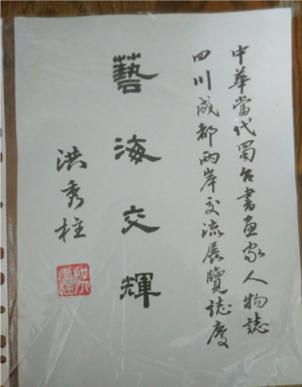 中華當代蜀台書畫家人物誌
四川成都兩岸交流展覽誌慶
藝海交輝
洪秀柱